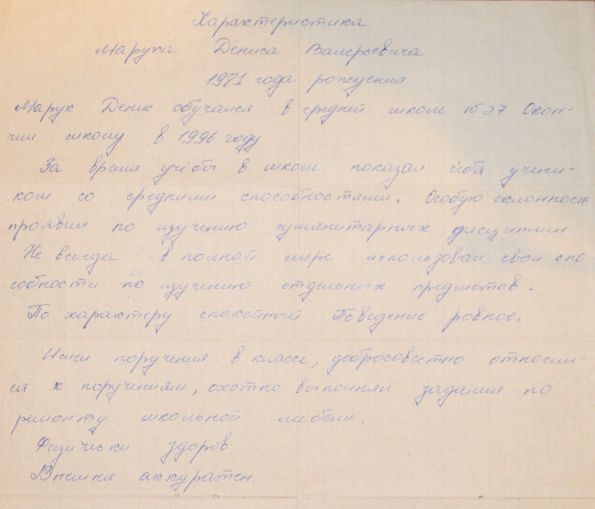 Характеристика
Марука Дениса Валерьевича
1981 года рождения
Марук Денис обучался в средней школе № 27 Окон-
чил школу в 1996 году
За время учёбы в школе показал себя учени-
ком со средними способностями. Особую склонность
проявил по изучению гуманитарных дисциплин
Не всегда в полной мере использовал свои спо-
собности по изучению отдельных предметов.
По характеру спокойный Поведение ровное.
Имел поручения в классе, добросовестно относил-
ся к поручениям, охотно выполнял задания по
ремонту школьной мебели.
Физически здоров
Внешне аккуратен.